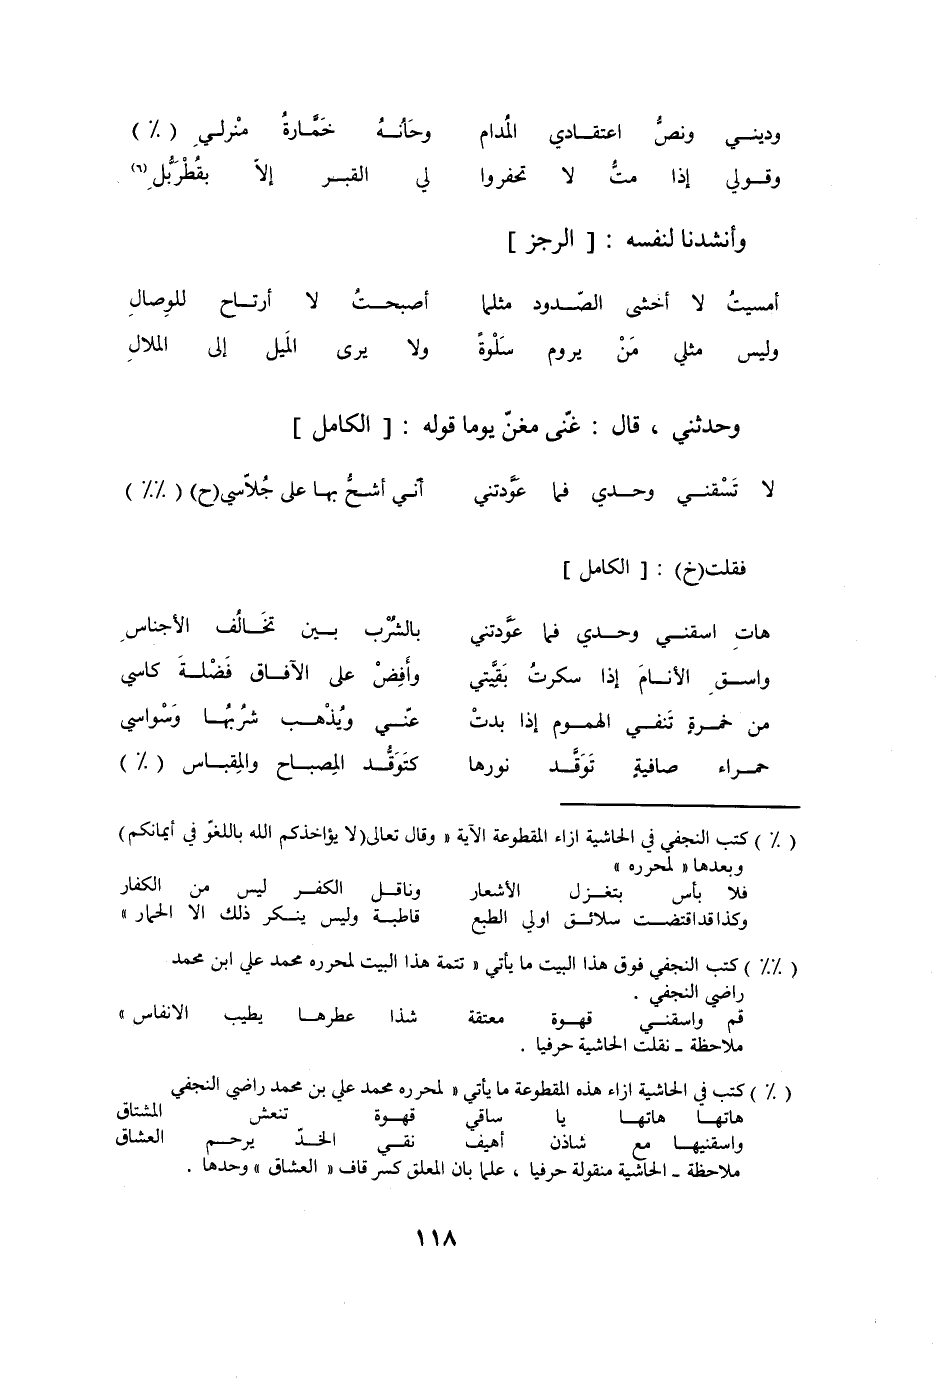 وديني ونصُّ اعتقادي المُدام وحَانُهُ خَمَّارةُ منْزلي ( ٪ )
وقولي إذا متُّ لا تحفروا لي القبر إلاّ بقُطْرَبُّلِ (٦)
وأنشدنا لنفسه : [ الرجز ]
أمسيتُ لا أخشى الصّدود مثلما أصبحتُ لا أرتاح للوِصالِ
وليس مثلي مَنْ يروم سَلْوةً ولا يرى المَيل إلى الملالِ
وحدثني ، قال : غنّى مغنّ يوما قوله : [ الكامل ]
لا تَسْقني وحدي فما عوَّدتني أنّي أشحُّ بها على جُلاّسي(ح) ( ٪٪ )
فقلت(خ) : [ الكامل ]
هاتِ اسقني وحدي فما عوَّدتني بالشرْب بين تخَالُف الأجناسِ
واسقِ الأنامَ إذا سكرتُ بَقيَّتي وأَفِضْ على الآفاق فَضْلةَ كاسي
من خمرةٍ تَنفي الهموم إذا بدتْ عنّي ويُذْهب شربُها وَسْواسي
حمراء صافيةٍ تَوَقَّد نورها كتَوَقُّد المِصباح والمِقباس ( ٪ )
( ٪ ) كتب النجفي في الحاشية ازاء المقطوعة الآية « وقال تعالى(لا يؤاخذكم الله باللغو في أيمانكم)
وبعدها « لمحرره »
فلا بأس بتغزل الأشعار وناقل الكفر ليس من الكفار
وكذا قد اقتضت سلائق اولي الطبع قاطبة وليس ينكر ذلك الا الحمار »
( ٪٪ ) كتب النجفي فوق هذا البيت ما يأتي « تتمة هذا البيت لمحرره محمد علي ابن محمد
راضي النجفي .
قم واسقني قهوة معتقة شذا عطرها يطيب الانفاس »
ملاحظة ـ نقلت الحاشية حرفيا .
( ٪ ) كتب في الحاشية ازاء هذه المقطوعة ما يأتي « لمحرره محمد علي بن محمد راضي النجفي
هاتها هاتها يا ساقي قهوة تنعش المشتاق
واسقنيها مع شاذن أهيف نقي الخدّ يرحم العشاق
ملاحظة ـ الحاشية منقولة حرفيا ، علما بان المعلق كسر قاف « العشاق » وحدها .
١١٨